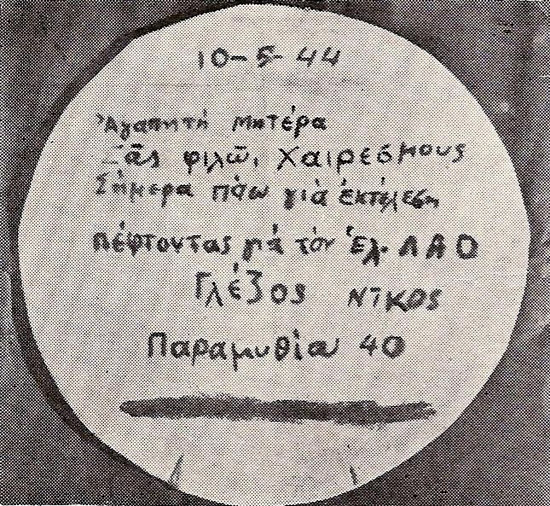 10-5-44
Ἀγαπητή μητέρα
Σᾶς φιλῶ, χαιρεσμους
Σήμερα πάω γιὰ ἐκτέλεση
πέφτοντας γιά τὸν Ἑλ. ΛΑΟ
Γλέζος ΝΙΚΟΣ
Παραμυθία 40